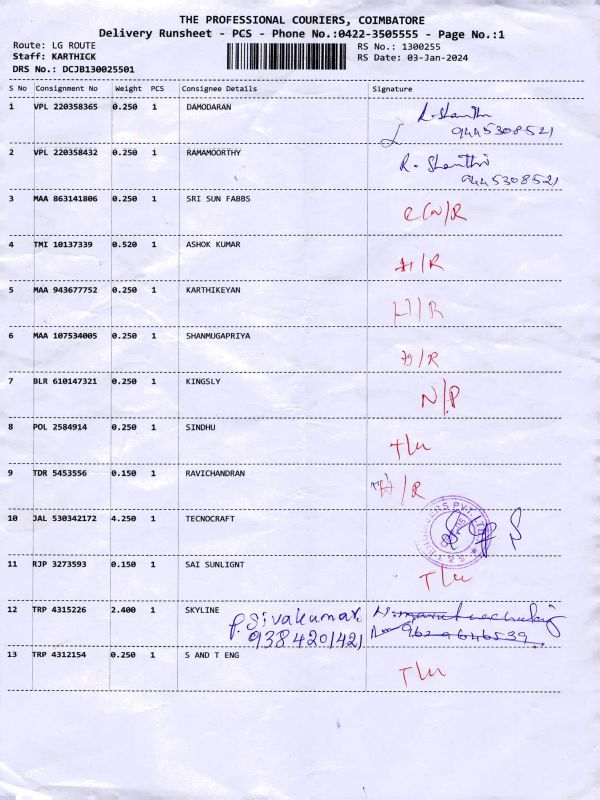 THE PROFESSIONAL COURIERS, COIMBATORE
Delivery Runsheet - PCS - Phone No.:0422-3505555 - Page No.:1
Route: LG ROUTE
Staff: KARTHICK
DRS No.: DCJB130025501
RS No.: 1300255
RS Date: 03-Jan-2024
S No Consignment No Weight PCS Consignee Details Signature
1 VPL 220358365 0.250 1 DAMODARAN R. Shanthi
9445308521
2 VPL 220358432 0.250 1 RAMAMOORTHY R. Shanthi
9445308521
3 MAA 863141806 0.250 1 SRI SUN FABBS
4 TMI 10137339 0.520 1 ASHOK KUMAR H/R
5 MAA 943677752 0.250 1 KARTHIKEYAN H/R
6 MAA 107534005 0.250 1 SHANMUGAPRIYA
7 BLR 610147321 0.250 1 KINGSLY N/P
8 POL 2584914 0.250 1 SINDHU
9 TDR 5453556 0.150 1 RAVICHANDRAN H/R
10 JAL 530342172 4.250 1 TECNOCRAFT
11 RJP 3273593 0.150 1 SAI SUNLIGNT
12 TRP 4315226 2.400 1 SKYLINE P. Sivakumar
9384201421
13 TRP 4312154 0.250 1 S AND T ENG